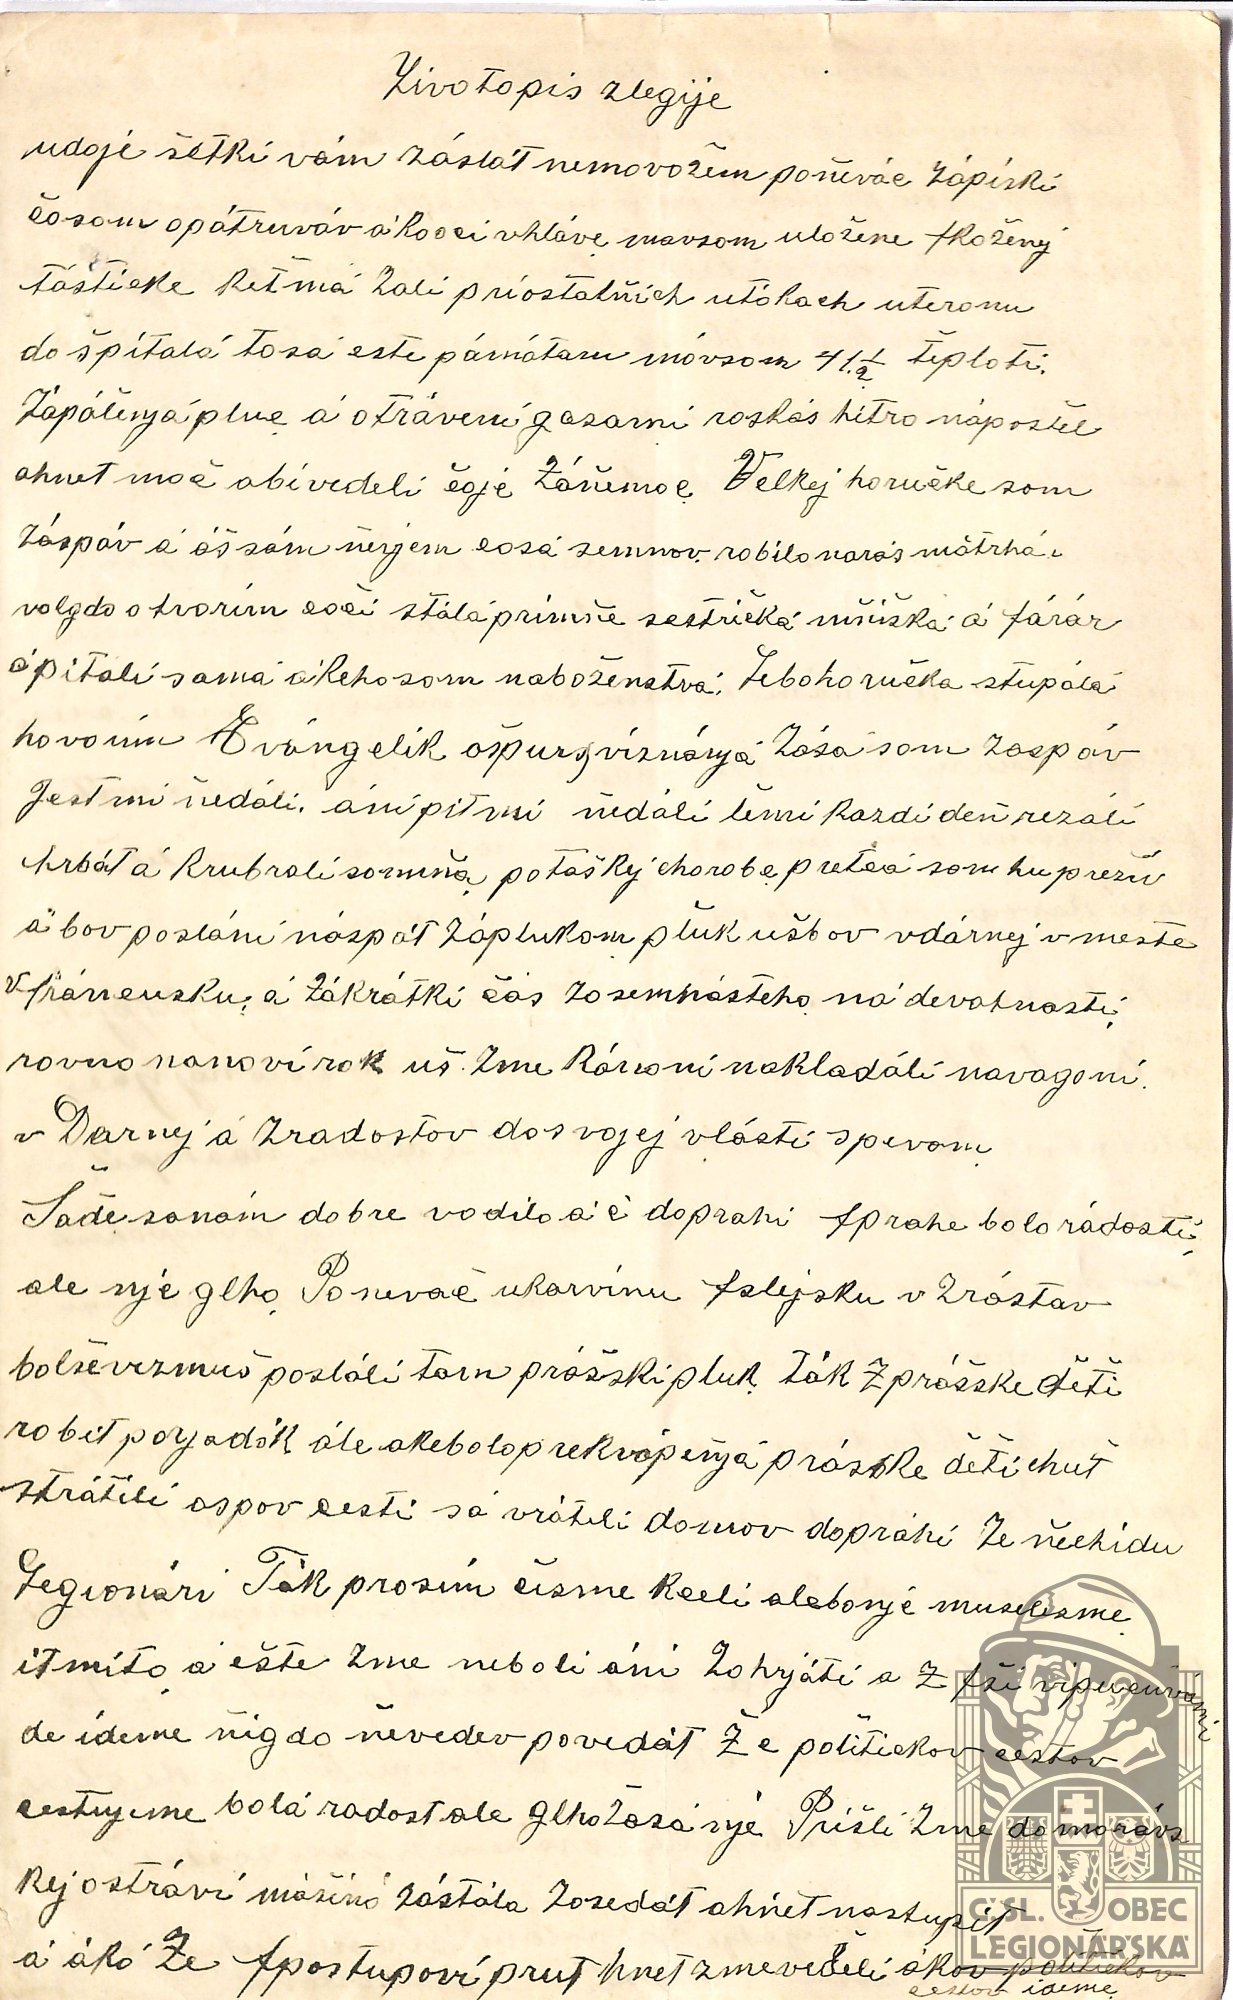 Životopis zlegije
udajé šetki vám záslát nemovožem poňeváč zápiski
čosom opátruváv ákooči vhláve mavsom uložene fkoženej
tástičke ketma zali priostatňich utokach uteronu
do špitalá tosá este pámátam mávsom 41.½ teploti.
Zápálenjá pluc á otráveni gasami roskás hitro nápostel
ahnet moč abi vedeli čoje zánemoc Velkej horučke som
záspáv á áš sám nevjem cosá semnov robilo narás mátrhá
volgdo otvorim oči stála primňe sestričká mňiška á fárár
špitáli samá ákehosom naboženstvá. Lebo horučka stupálá
hovorim Evángelik ošpurg viznánjá zása som zaspáv
Jest mi ňedáli. áni pit mi ňedáli lemi kazdi deň rezáli
hrbát á krubrali somňa potaškej chorobe pretca som hu preživ
á bov poslani náspát záplukom pluk ušbov vdárnej v meste
v fráncusku, á zákrátki čás zosemnásteho ná devatnasti,
rovno nanovi rok uš zme kánoni nakladáli navagoni.
v Darnej á zradostov dosvojej vlásti spevom
Šáde sanám dobre vodilo áč doprahi fprahe bolo rádosti,
ale nje glho Ponevač ukarvinu fslejsku v zrástav
bolševizmus posláli tam prášski pluk ták zprášske deti
robit porjadok ále akebolo prekvápenjá prásske deti chuť
strátili aspov cesti sá vrátili domov dopráhi že ňechidu
Legionári Ták prosim čisme kceli alebonje museli sme
it mito á ešte zme neboli áni zohrjáti a z fši vipucuvani
de ideme ňigdo ňevedev povedát že politickov cestov
cestujeme bolá radost ale glho zasá njé Prišli zme do moravs
kej ostrávi mášina zástála zosedát ahňet nastupit
á áko že fpostupovi prut hnet zmevideli ákov politickov
cestov ideme
ČSL. OBEC
LEGIONÁŘSKÁ